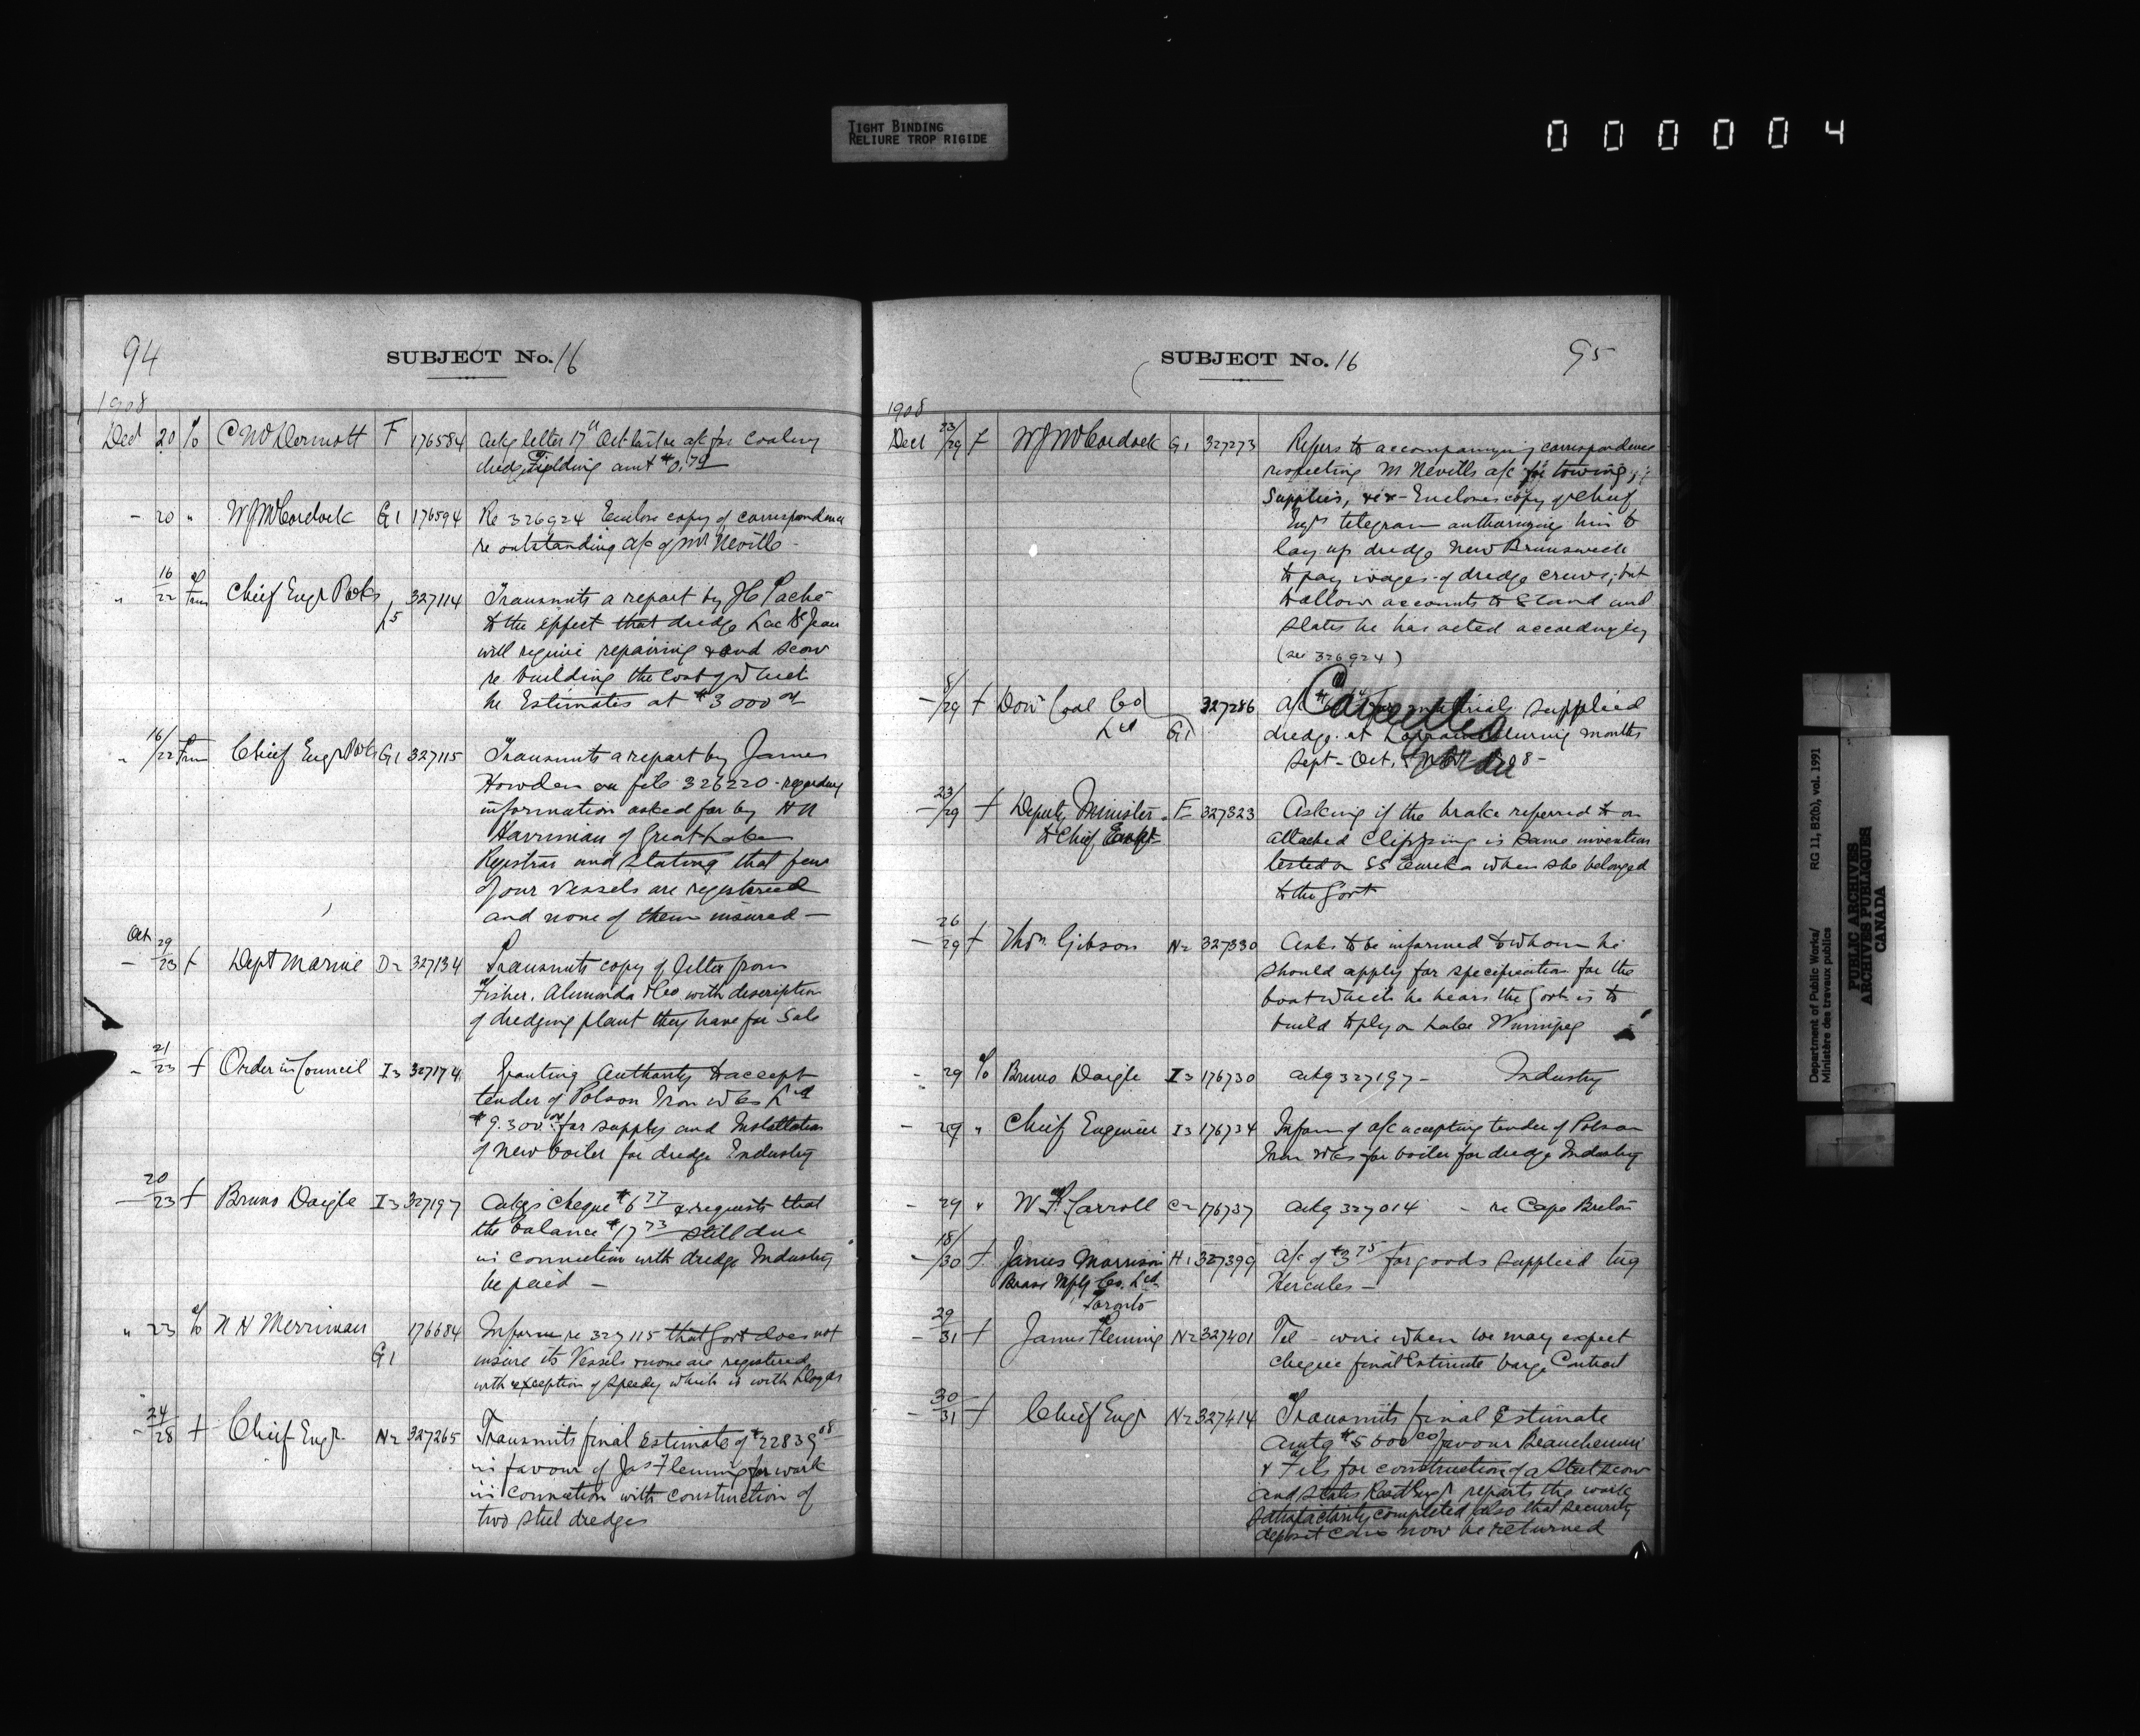 TIGHT BINDING
RELIURE TROP RIGIDE
000004
94
SUBJECT No. 16
1908
Dec 20 % C McDermott F 176584 Ackg letter 17th Oct last re a/c for coaling
dredge Fielding amt $0.79
- 20 " W J McCordock G1 176594 Re 326924 Enclose copy of correspondence
re outstanding a/c of Mr Neville -
" 16/22 from Chief Engr P Wks L5 327114 Transmits a report by J H Paché
to the effect that dredge Lac St Jean
will require repairing and scow
re building the cost of which
he Estimates at $3000.00
" 16/22 from Chief Engr P Wks G1 327115 Transmits a report by James
Howden on file 326220 - regarding
information asked for by H N
Harriman of Great Lakes
Register and stating that few
of our vessels are registered
and none of them insured -
Oct 29
- 23 f Dept Marine D2 327134 Transmits copy of letter from
Fisher, Alimonda & Co with description
of dredging plant they have for sale
- 21/23 f Order in Council I3 327174 Granting Authority to accept
tender of Polson Iron Wks Ltd
$9.300.00 for supply and Installation
of new boiler for dredge Industry
- 20/23 f Bruno Daigle I3 327197 Ackgs cheque $6.77 & requests that
the balance $17.23 still due
in connection with dredge Industry
be paid -
" 23 % N H Merriman G1 176684 Inform re 327115 that Govt does not
insure its Vessels & none are registered
with exception of Speedy which is with Lloyds
- 24/28 f Chief Engr. N2 327265 Transmits final estimate of $22839.08
in favour of Jas Fleming for work
in connection with construction of
two steel dredges
SUBJECT No. 16
95
1908
Dec 23/29 f W J McCordock G1 327273 Refers to accompanying correspondence
respecting M Nevills a/c for towing,
Supplies, &c - Encloses copy of Chief
Engrs telegram authorizing him to
lay up dredge New Brunswick
to pay wages of dredge crews; but
to allow accounts to stand and
states he has acted accordingly
(see 326924)
- /29 f Dom Coal Co Ltd G1 327286 a/c materials supplied
dredge at during months
Sept - Oct. 1908 -
Cancelled
- 23/29 f Deputy Minister to Chief Engr E 327323 Asking if the brake referred to on
attached Clipping is same invention
tested on SS Eureka when she belonged
to the Govt
- 26/29 f Thos. Gibson N2 327330 Asks to be informed to whom he
should apply for specification for the
boat which he hears the Govt is to
build to ply on Lake Winnipeg
- 29 % Bruno Daigle I3 176730 Ackg 327197 - Industry
- 29 " Chief Engineer I3 176734 Inform of o/c accepting tender of Polson
Iron Wks for boiler for dredge Industry
- 29 " W F Carroll C2 176737 Ackg 327014 - re Cape Breton
- 18/30 f James Morrison H1 327399 a/c of $3.75 for goods supplied tug
Brass Mfg Co. Ltd Hercules -
Toronto
- 29/31 f James Fleming N2 327401 Tel - wire when we may expect
cheque final Estimate barge Contract
- 30/31 f Chief Engr N2 327414 Transmits final Estimate
amtg $5000.00 favour Beauchemin
& Fils for construction of a steel scow
and states Resdt Engr reports the work
satisfactorily completed also that security
deposit can now be returned
Department of Public Works/ RG 11, B2(b), vol. 1991
Ministère des travaux publics
PUBLIC ARCHIVES
ARCHIVES PUBLIQUES
CANADA